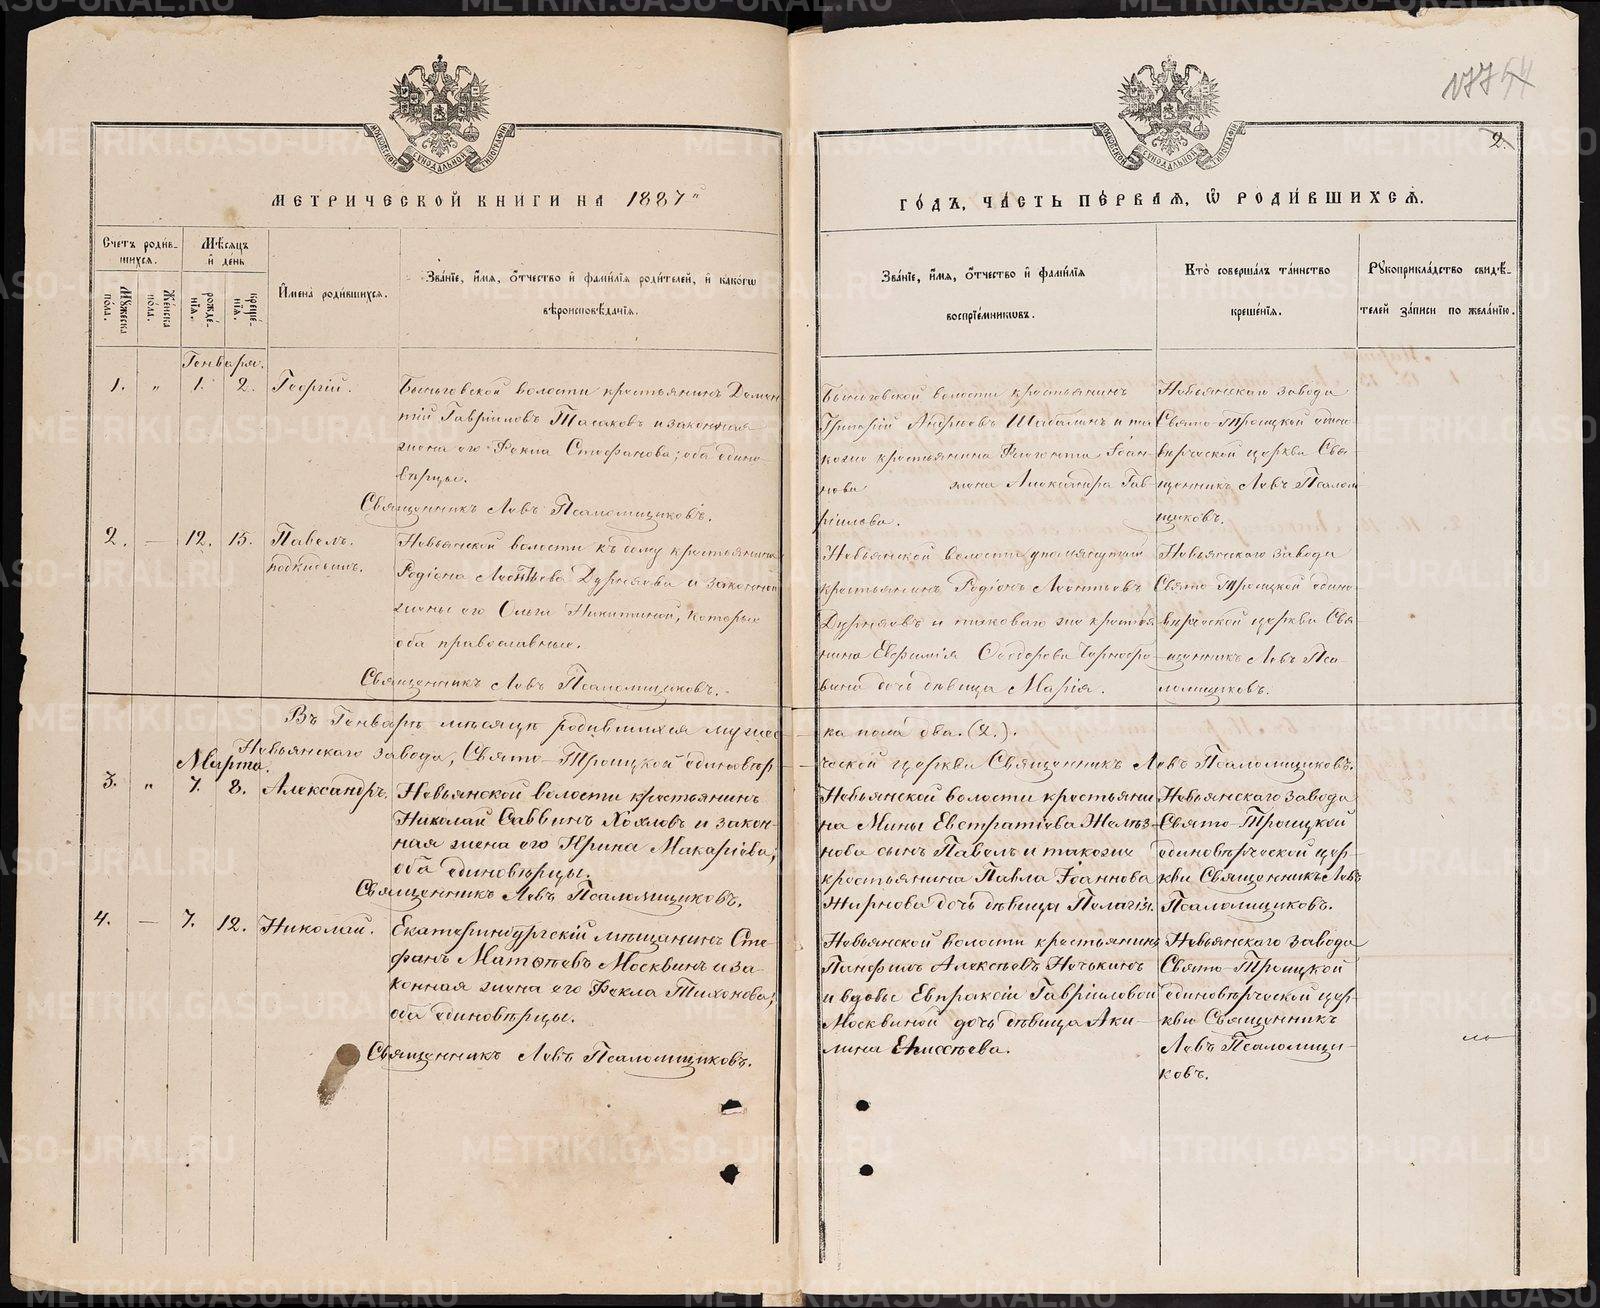 17754
2.
МЕТРИЧЕСКОЙ КНИГИ НА 1887й
ГО́ДЪ, ЧА́СТЬ ПЕ́РВАѦ, Ѿ РОДИ́ВШИХСѦ.
Счетъ роди́в-
шихсѧ.
Му́жеска по́ла.
Же́нска по́ла.
Мѣ́сѧцъ
и҆ день
рожде́-
нїѧ.
креще́-
нїѧ.
И҆мена̀ роди́вшихсѧ.
Зва́нїе, и҆́мѧ, ѻ҆́тчество и҆ фами́лїѧ роди́телей, и҆ како́гѡ
вѣроисповѣ́данїѧ.
Зва́нїе, и҆́мѧ, ѻ҆́тчество и҆ фами́лїѧ
воспрїе́мникѡвъ.
Кто̀ соверша́лъ та́инство
креще́нїѧ.
Рꙋкоприкла́дство свидѣ́-
телей за́писи по жела́нїю.
Генваря.
1. " 1. 2. Георгій.
Быньговской волости крестьянинъ Домен
тій Гавріиловъ Талаковъ и законная
жена его Фекла Стефанова; оба едино-
вѣрцы.
Священникъ Левъ Псаломщиковъ.
Быньговской волости крестьянинъ
Григорій Андреевъ Шабалинъ и та
когоже крестьянина Іоан-
нова жена Александра Гав-
ріилова.
Невьянскаго завода
Свято-Троицкой едино
вѣрческой церкви Свя-
щенникъ Левъ Псалом
щиковъ.
2. — 12. 15. Павелъ.
подкидышъ.
Невьянской волости къ дому крестьянина
Родіона Леонтьева Дурняева и законной
жены его Ольги Никитиной, которые
оба православные.
Священникъ Левъ Псаломщиковъ.
Невьянской волости упомянутый
крестьянинъ Родіонъ Леонтьевъ
Дурняевъ и таковаго же крестья
нина Евфимія Ѳеодорова
дочь дѣвица Марія.
Невьянскаго завода
Свято-Троицкой едино-
вѣрческой церкви Свя-
щенникъ Левъ Пса-
ломщиковъ.
Въ Генварѣ мѣсяцѣ родившихся мужес-
ка пола два. (2.).
Невьянскаго завода, Свято-Троицкой единовѣр-
ческой церкви Священникъ Левъ Псаломщиковъ.
Марта.
3. " 7. 8. Александръ.
Невьянской волости крестьянинъ
Николай Саввинъ Хохловъ и закон-
ная жена его Ирина Макаріева;
оба единовѣрцы.
Священникъ Левъ Псаломщиковъ.
Невьянской волости крестьяни
на Мины Евстратіева Желѣз-
нова сынъ Павелъ и такогоже
крестьянина Павла Іоаннова
Жирнова дочь дѣвица Пелагія.
Невьянскаго завода
Свято-Троицкой
единовѣрческой цер-
кви Священникъ Левъ
Псаломщиковъ.
4. — 7. 12. Николай.
Екатеринбургскій мѣщанинъ Сте-
фанъ Матѳѣевъ Москвинъ и за-
конная жена его Фекла Тихонова;
оба единовѣрцы.
Священникъ Левъ Псаломщиковъ.
Невьянской волости крестьянинъ
Панфилъ Алексѣевъ
и вдовы Евпраксіи Гавріиловой
Москвиной дочь дѣвица Аки-
лина Елисѣева.
Невьянскаго завода
Свято-Троицкой
единовѣрческой цер-
кви Священникъ
Левъ Псаломщи-
ковъ.
METRIKI.GASO-URAL.RU